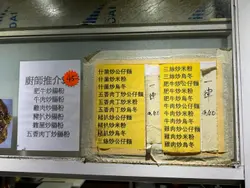 廚師推介
肥牛炒腸粉
牛肉炒腸粉
雞肉炒腸粉
豬扒炒腸粉
雞翼炒腸粉
五香肉丁炒腸粉
什菌炒公仔麵
什菌炒米粉
什菌炒烏冬
五香肉丁炒公仔麵
五香肉丁炒米粉
五香肉丁炒烏冬
豬扒炒公仔麵
豬扒炒米粉
豬扒炒烏冬
三絲炒公仔麵
三絲炒米粉
三絲炒烏冬
肥牛炒公仔麵
肥牛炒米粉
肥牛炒烏冬
牛肉炒公仔麵
牛肉炒米粉
牛肉炒烏冬
雞肉炒公仔麵
雞肉炒米粉
雞肉炒烏冬